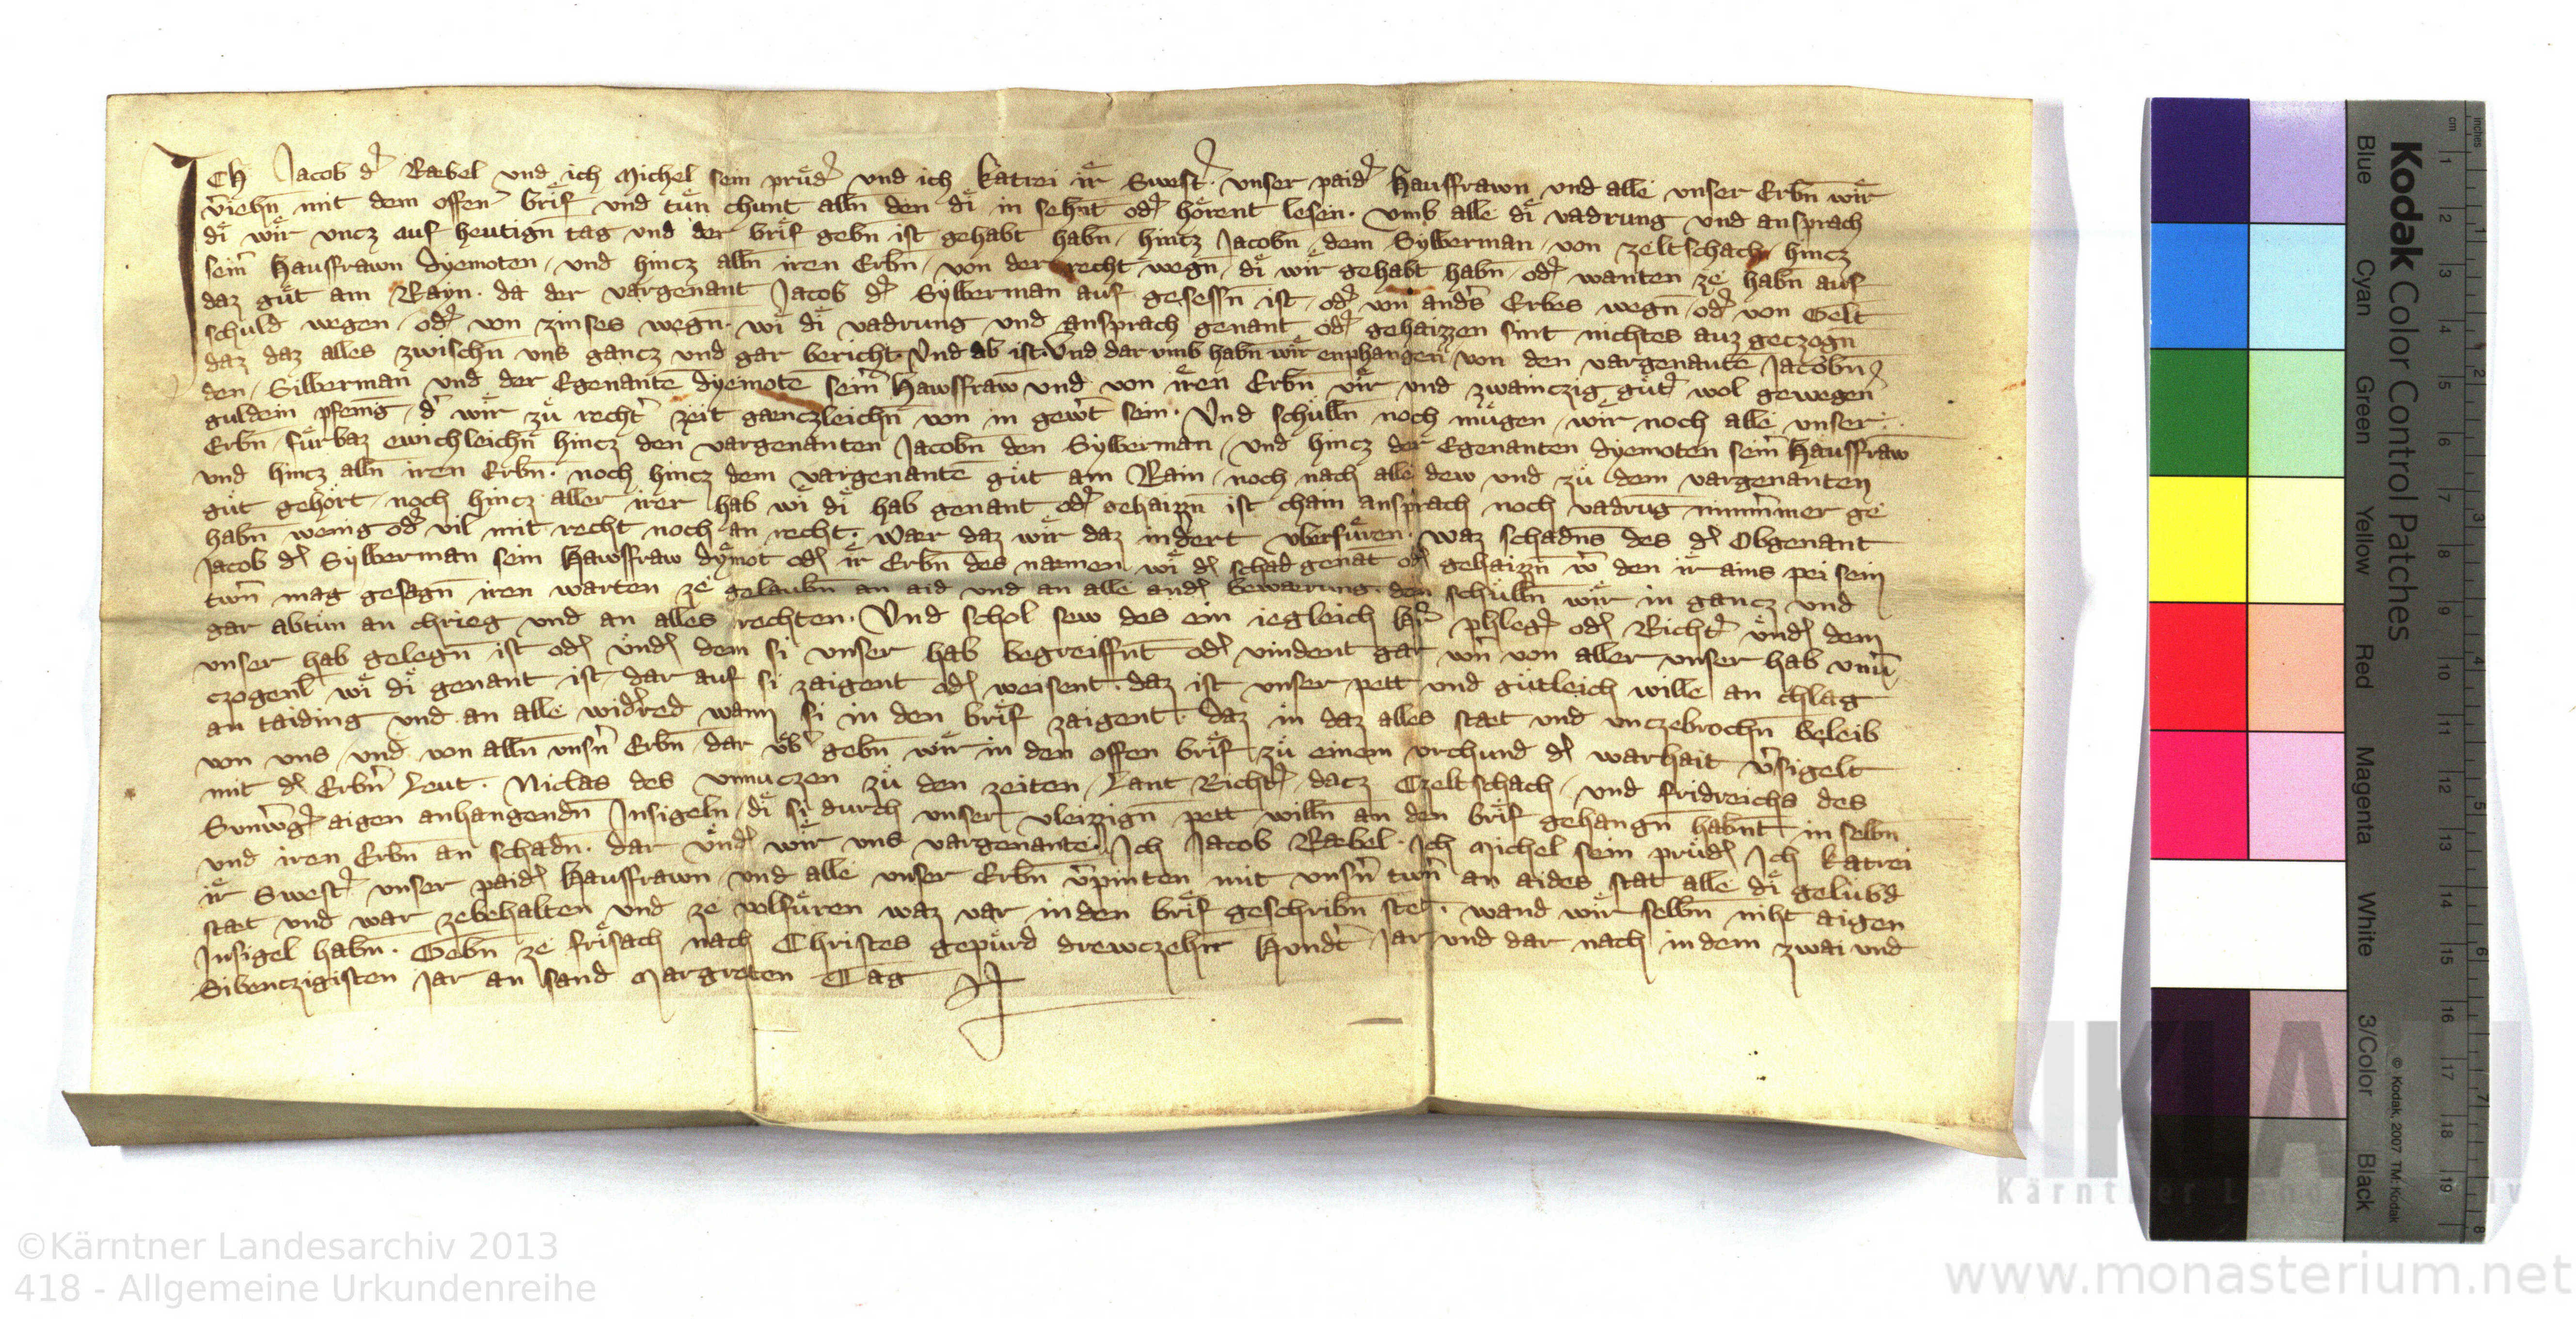 Ich Jacob d' Räbel vnd ich Michel sein průd' vnd ich Katrei ir Swest' vnser paid' Hausfrawn vnd alle vnser Erbn̄ wir
v'iehn̄ mit dem offen' brif vnd tůn chunt alln̄ den di in sehnt od' hörent lesen. vmb alle di vadrung vnd ansprach
di wir vncz auf heutign̄ tag vnd der brif gebn̄ ist gehabt habn̄ hincz Jacobn̄ dem Sylberman von zeltschach hincz
sein' Hausfrawn dyemoten vnd hincz alln̄ iren Erbn̄ von der recht wegn̄ di wir gehabt habn̄ od' wanten ze habn̄ auf
daz gůt am Rayn. da der vargenant Jacob d' Sylberman auf gesessn̄ ist od' von and's Erbes wegn̄ od' von Gelt
schuld wegen od' von zinses wegn̄. wi di vadrung vnd ansprach genant od' gehaizzen sint nichtes auz geczogn̄
daz daz alles zwischn̄ vns gancz vnd gar bericht vnd ab ist. Vnd dar vmb habn̄ wir enphangen von den vargenantē Jacobn̄
den Silberman vnd der Egenantē dyemotē sein' Hawsfraw vnd von iren Erbn̄ vir vnd zwainczig gůt' wol gewegen'
guldein pfenīg d' wir zů recht' zeit gänczleichn̄ von in gew't sein. Vnd schülln̄ noch mügen wir noch alle vnser
Erbn̄ fürbaz ewichleichn̄ hincz den vargenanten Jacobn̄ den Sylberman vnd hincz der Egenanten dyemoten sein' Hausfraw
vnd hincz alln̄ iren Erbn̄. noch hincz dem vargenantē gůt am Rain noch nach alle dew vnd zů dem vargenanten
gůt gehört noch hincz aller irer hab wi di hab genant od' gehaizzn̄ ist chain ansprach noch vadrūg nimm'mer ge
habn̄ wenig od' vil mit recht noch an recht. Wär daz wir daz indert vberfůren. waz schadns des d' Obgenant
Jacob d' Sylberman sein Hawsfraw dymot od' ir Erbn̄ des nämen wi d' schad genāt od' gehaizzn̄ w' den ir ains pei sein
trwn̄ mag gesagn̄ iren warten ze gelaubn̄ an aid vnd an alle and' bewärung. den schülln̄ wir in gancz vnd
gar abtůn an chrieg vnd an alles rechten. Vnd schol sew des ein iegleich h'r phleg' od' Richt' vnd' dem
vnser hab gelegn̄ ist od' vnd' dem si vnser hab begreiffnt od' vindent gar w'n von aller vnser hab vnu'
czogenl' wi di genant ist dar auf si zaigent od' weisent. daz ist vnser pett vnd gůtleich wille an chlag
an taiding vnd an alle wid'red wann si in den brif zaigent. Daz in daz alles stät vnd vnczebrochn̄ beleib
von vns vnd von alln̄ vnsn̄ Erbn̄ dar vb' gebn̄ wir in den offen brif zů einem vrchund d' warhait v'sigelt
mit d' Erbn̄ Leut. Niclas des vnnuczen zů den zeiten Lant Richt' dacz Czeltschach vnd Fridreichs des
aigen anhangendn̄ Insigeln di si durch vnser vleizzign̄ pett willn̄ an den brif gehangn̄ habnt in selbn
vnd iren Erbn̄ an schadn̄. dar vnd' wir vns vargenante. Ich Jacob Räbel. Ich Michel sein průd' Ich Katrei
ir Swest' vnser paid' Hausfrawn vnd alle vnser Erbn̄ v'pinten mit vnsn̄ trwn̄ an aides stat alle di gelübd
stät vnd war zebehalten vnd ze volfůren waz var in den brif geschribn̄ stet. wand wir selbn̄ niht aigen
Insigel habn̄. Gebn̄ ze Frisach nach Christes gepůrd drewczehn Hundt' Jar vnd dar nach in dem zwai vnd
Sibenczigisten Jar an sand Margreten Tag
Kodak Color Control Patches
Blue Cyan Green Yellow Red Magenta White 3/Color Black
© Kodak, 2007 TM: Kodak
inches 1 2 3 4 5 6 7 8
cm 1 2 3 4 5 6 7 8 9 10 11 12 13 14 15 16 17 18 19
©Kärntner Landesarchiv 2013
418 - Allgemeine Urkundenreihe
www.monasterium.net